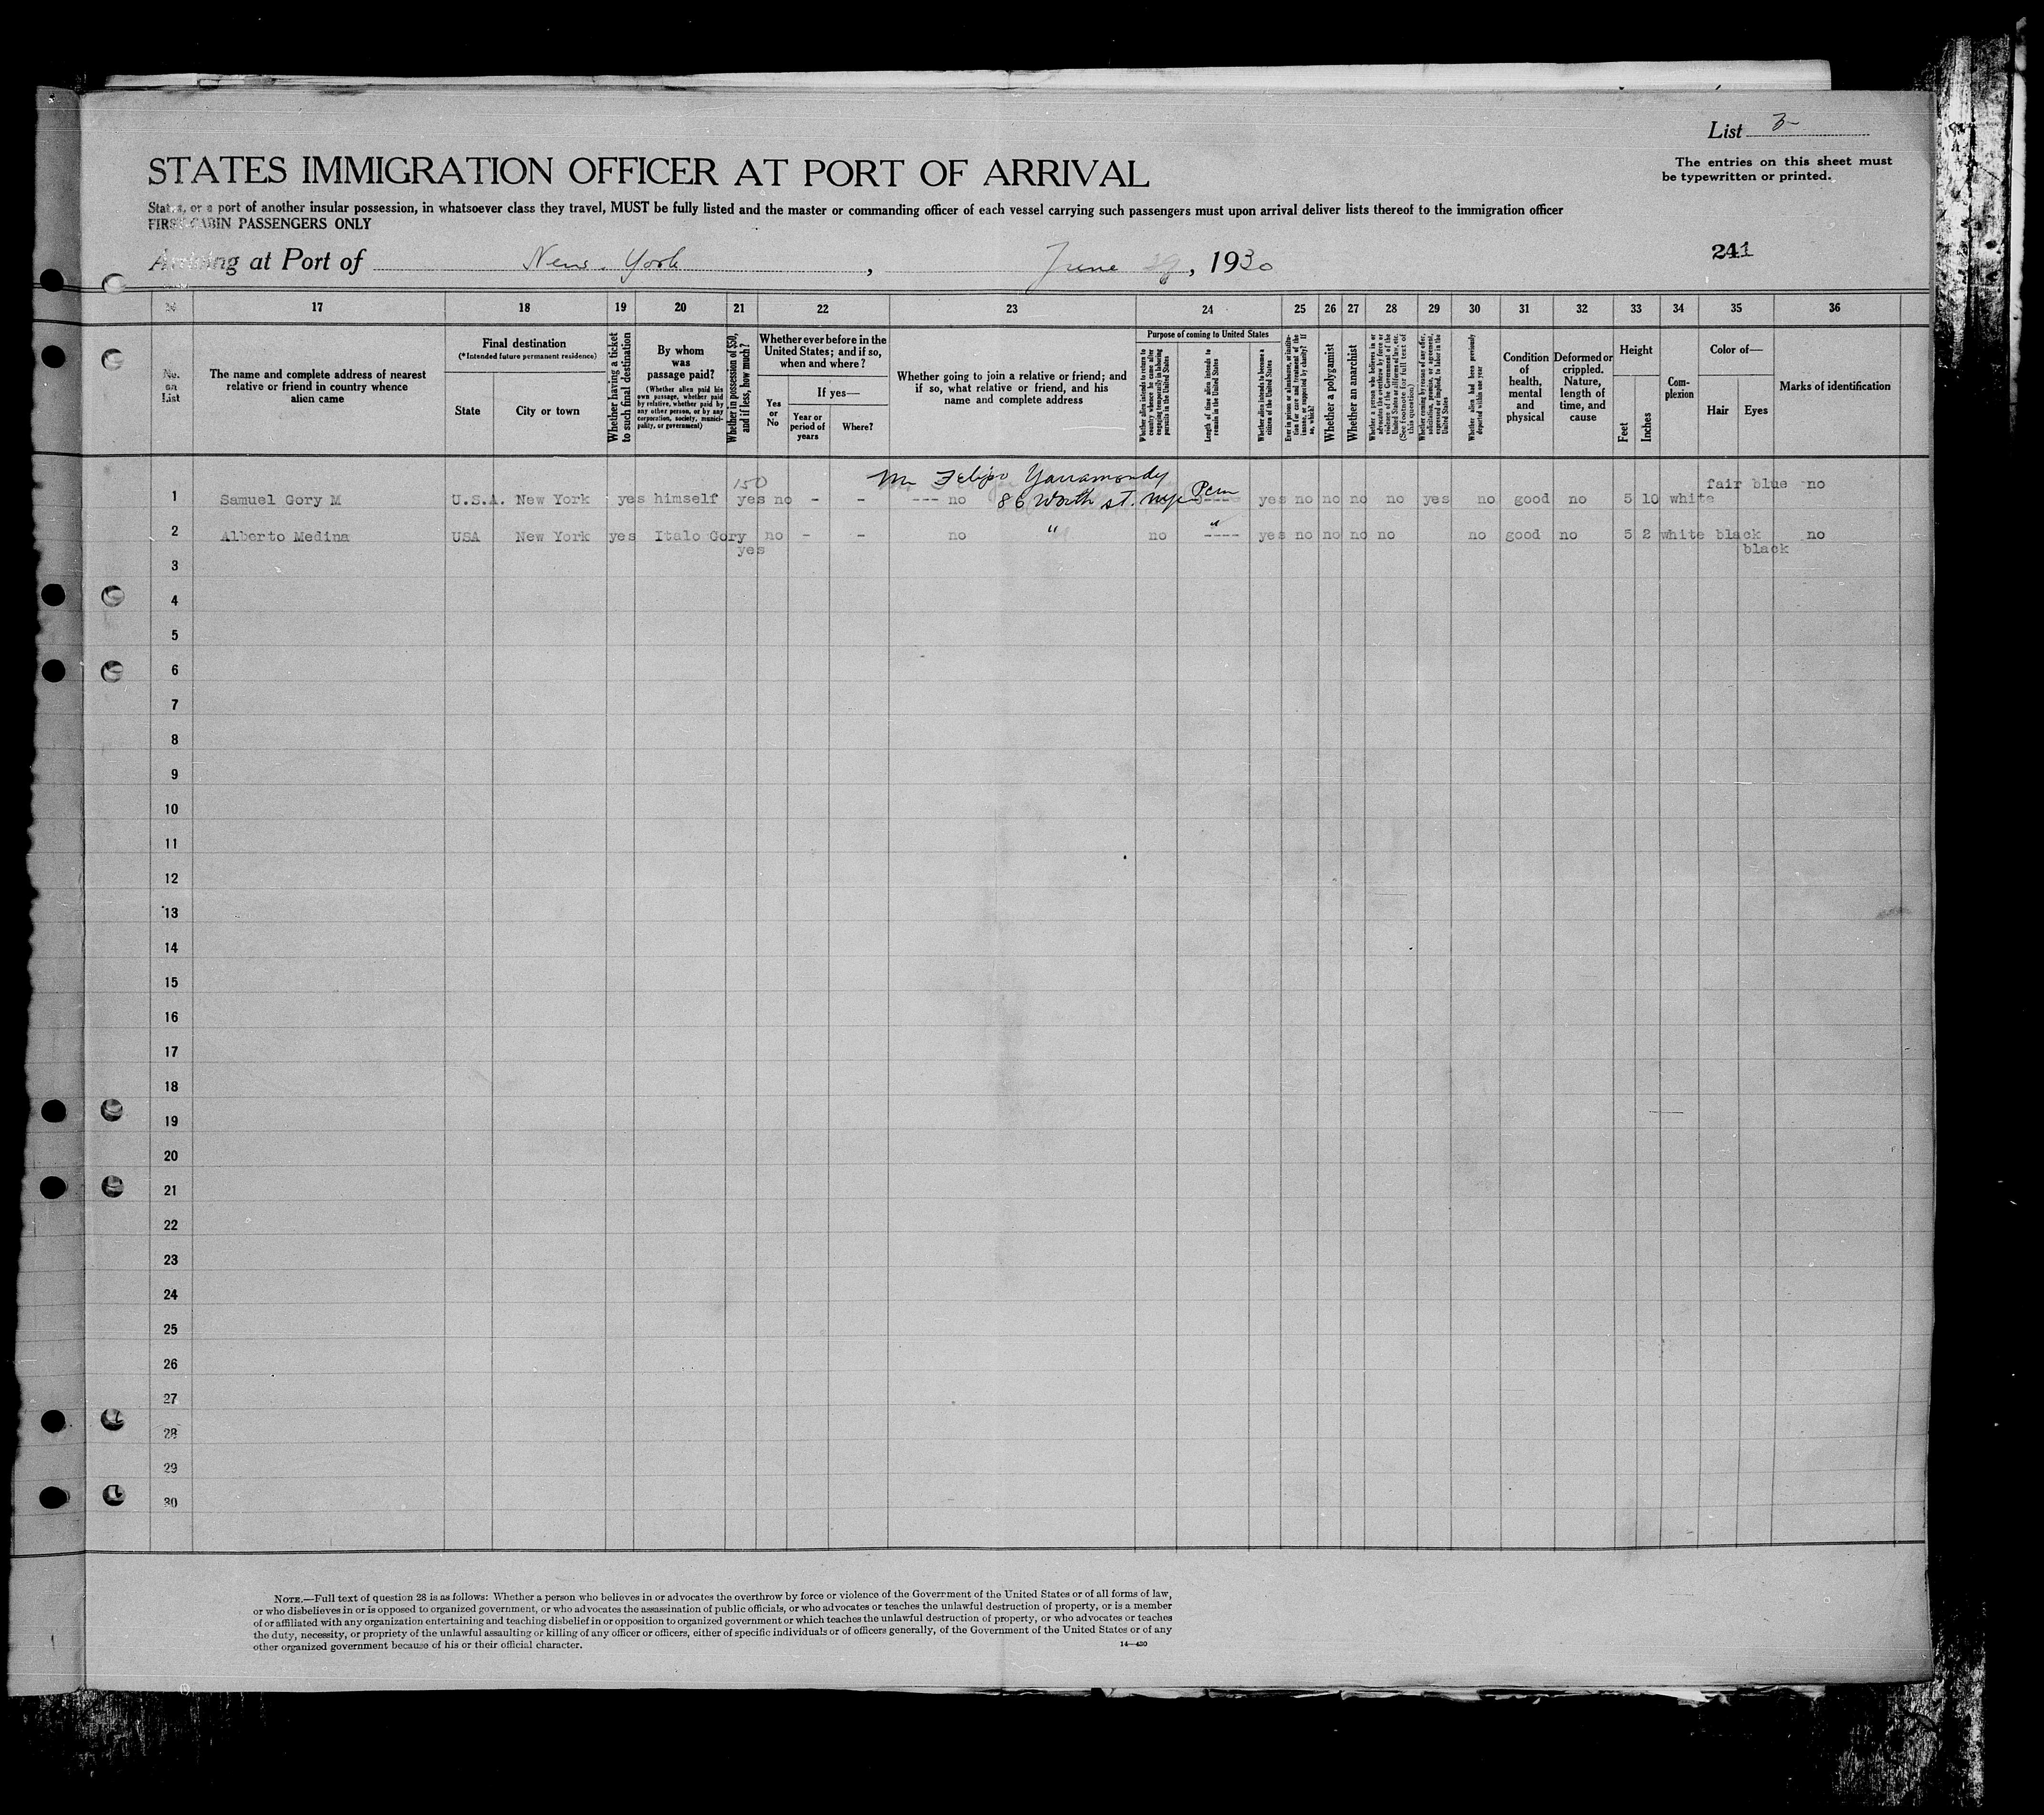 List 3
The entries on this sheet must
be typewritten or printed.
STATES IMMIGRATION OFFICER AT PORT OF ARRIVAL
States, or a port of another insular possession, in whatsoever class they travel, MUST be fully listed and the master or commanding officer of each vessel carrying such passengers must upon arrival deliver lists thereof to the immigration officer
FIRST-CABIN PASSENGERS ONLY
Arriving at Port of New York, June 29, 1930
241
17 18 19 20 21 22 23 24 25 26 27 28 29 30 31 32 33 34 35 36
No. on List
The name and complete address of nearest
relative or friend in country whence
alien came
Final destination
(*Intended future permanent residence)
State
City or town
Whether having a ticket
to such final destination
By whom
was
passage paid?
(Whether alien paid his
own passage, whether paid
by relative, whether paid by
any other person, or by any
corporation, society, munici-
pality, or government)
Whether in possession of $50,
and if less, how much?
Whether ever before in the
United States; and if so,
when and where?
Yes
or
No
If yes—
Year or
period of
years
Where?
Whether going to join a relative or friend; and
if so, what relative or friend, and his
name and complete address
Purpose of coming to United States
Whether alien intends to return to
country whence he came after
engaging temporarily in laboring
pursuits in the United States
Length of time alien intends to
remain in the United States
Whether alien intends to become a
citizen of the United States
Ever in prison or almshouse, or institu-
tion for care and treatment of the
insane, or supported by charity? If
so, which?
Whether a polygamist
Whether an anarchist
Whether a person who believes in or
advocates the overthrow by force or
violence of the Government of the
United States or all forms of law, etc.
(See footnote for full text of
this question)
Whether coming by reason of any offer,
solicitation, promise, or agreement,
expressed or implied, to labor in the
United States
Whether alien had been previously
deported within one year
Condition
of
health,
mental
and
physical
Deformed or
crippled.
Nature,
length of
time, and
cause
Height
Feet
Inches
Com-
plexion
Color of—
Hair
Eyes
Marks of identification
150 Mr Felipo fair blue no
1 Samuel Gory M U.S.A. New York yes himself yes no - - --- no 86 Worth st. NYC Perm ---- yes no no no no yes no good no 5 10 white
2 Alberto Medina USA New York yes Italo Gory no - - no " no " ---- yes no no no no no good no 5 2 white black no
yes black
3
4
5
6
7
8
9
10
11
12
13
14
15
16
17
18
19
20
21
22
23
24
25
26
27
28
29
30
NOTE.—Full text of question 28 is as follows: Whether a person who believes in or advocates the overthrow by force or violence of the Government of the United States or of all forms of law,
or who disbelieves in or is opposed to organized government, or who advocates the assassination of public officials, or who advocates or teaches the unlawful destruction of property, or is a member
of or affiliated with any organization entertaining and teaching disbelief in or opposition to organized government or which teaches the unlawful destruction of property, or who advocates or teaches
the duty, necessity, or propriety of the unlawful assaulting or killing of any officer or officers, either of specific individuals or of officers generally, of the Government of the United States or of any
other organized government because of his or their official character.
14—430